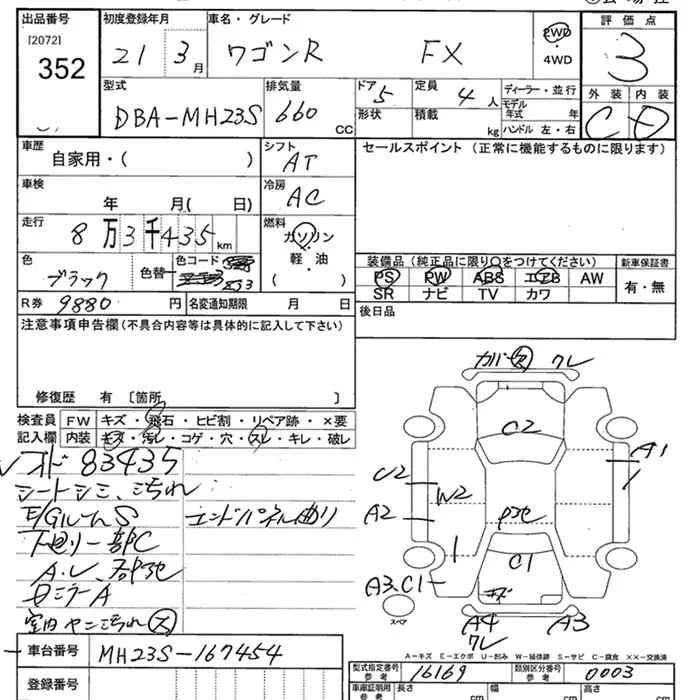 出品番号
[2072]
352
初度登録年月
21 3月
車名・グレード
ワゴンR FX
2WD
・
4WD
評価点
3
外装 内装
C D
型式
DBA-MH23S
排気量
660 CC
ドア 5
形状
定員 4人
積載 kg
ディーラー・並行
モデル
年式 年
ハンドル 左・右
車歴
自家用・( )
シフト
AT
セールスポイント (正常に機能するものに限ります)
車検
年 月( 日)
冷房
AC
走行
8万3千435km
燃料
ガソリン
軽・油
( )
色
ブラック
色替
色コード
装備品 (純正品に限り○をつけてください)
新車保証書
PS PW ABS エアB AW
有・無
SR ナビ TV カワ
R券 9880円
名変通知期限 月 日
後日品
注意事項申告欄(不具合内容等は具体的に記入して下さい)
修復歴 有 〔箇所 〕
検査員
記入欄
FW キズ・飛石・ヒビ割・リペア跡・×要
内装 キズ・汚レ・コゲ・穴・スレ・キレ・破レ
オド 83435
シートシミ、汚れ
E/GルームS
エンドパネル曲り
下廻り一部C
ミラーA
室内ヤニ汚れ ス
車台番号 MH23S-167454
登録番号
カバー ス ワレ
C2
A1
U2
W2
A2
C1
A3、C1
キズ
スペア
A4
ワレ
A3
A-キズ E-エクボ U-凹み W-補修跡 S-サビ C-腐食 XX-交換済
型式指定番号
参考
16169
類別区分番号
参考
0003
車庫証明用
参考
長さ cm
幅 cm
高さ cm